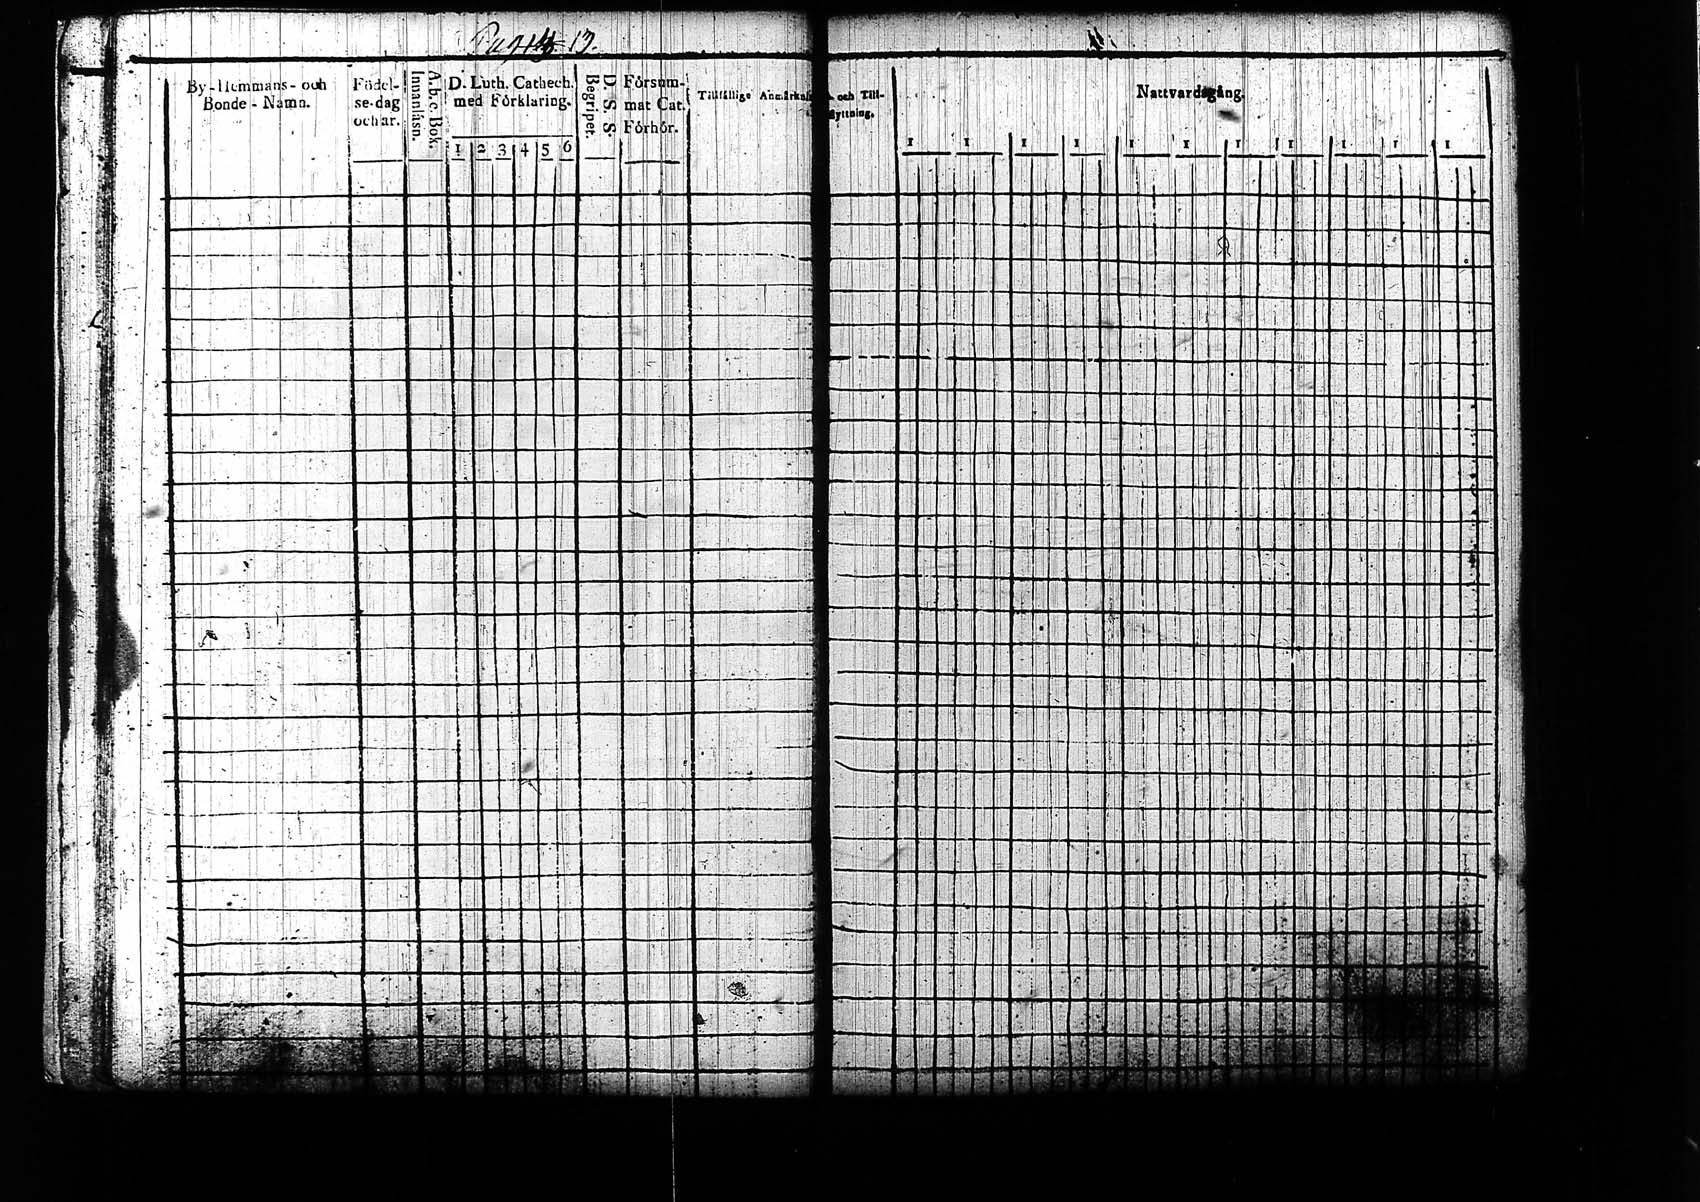 13.
By-Hemmans- och
Bonde-Namn.
Födel-
se-dag
och år.
A.b.c. Bok.
Innanläsn.
D. Luth. Cathech.
med Förklaring.
1 2 3 4 5 6
D. S. S.
Begripet.
Försum-
mat Cat.
Förhör.
Tillfällige Anmärkn
och Till-
flyttning.
Nattvardsgång.
1 1 1 1 1 1 1 1 1 1 1